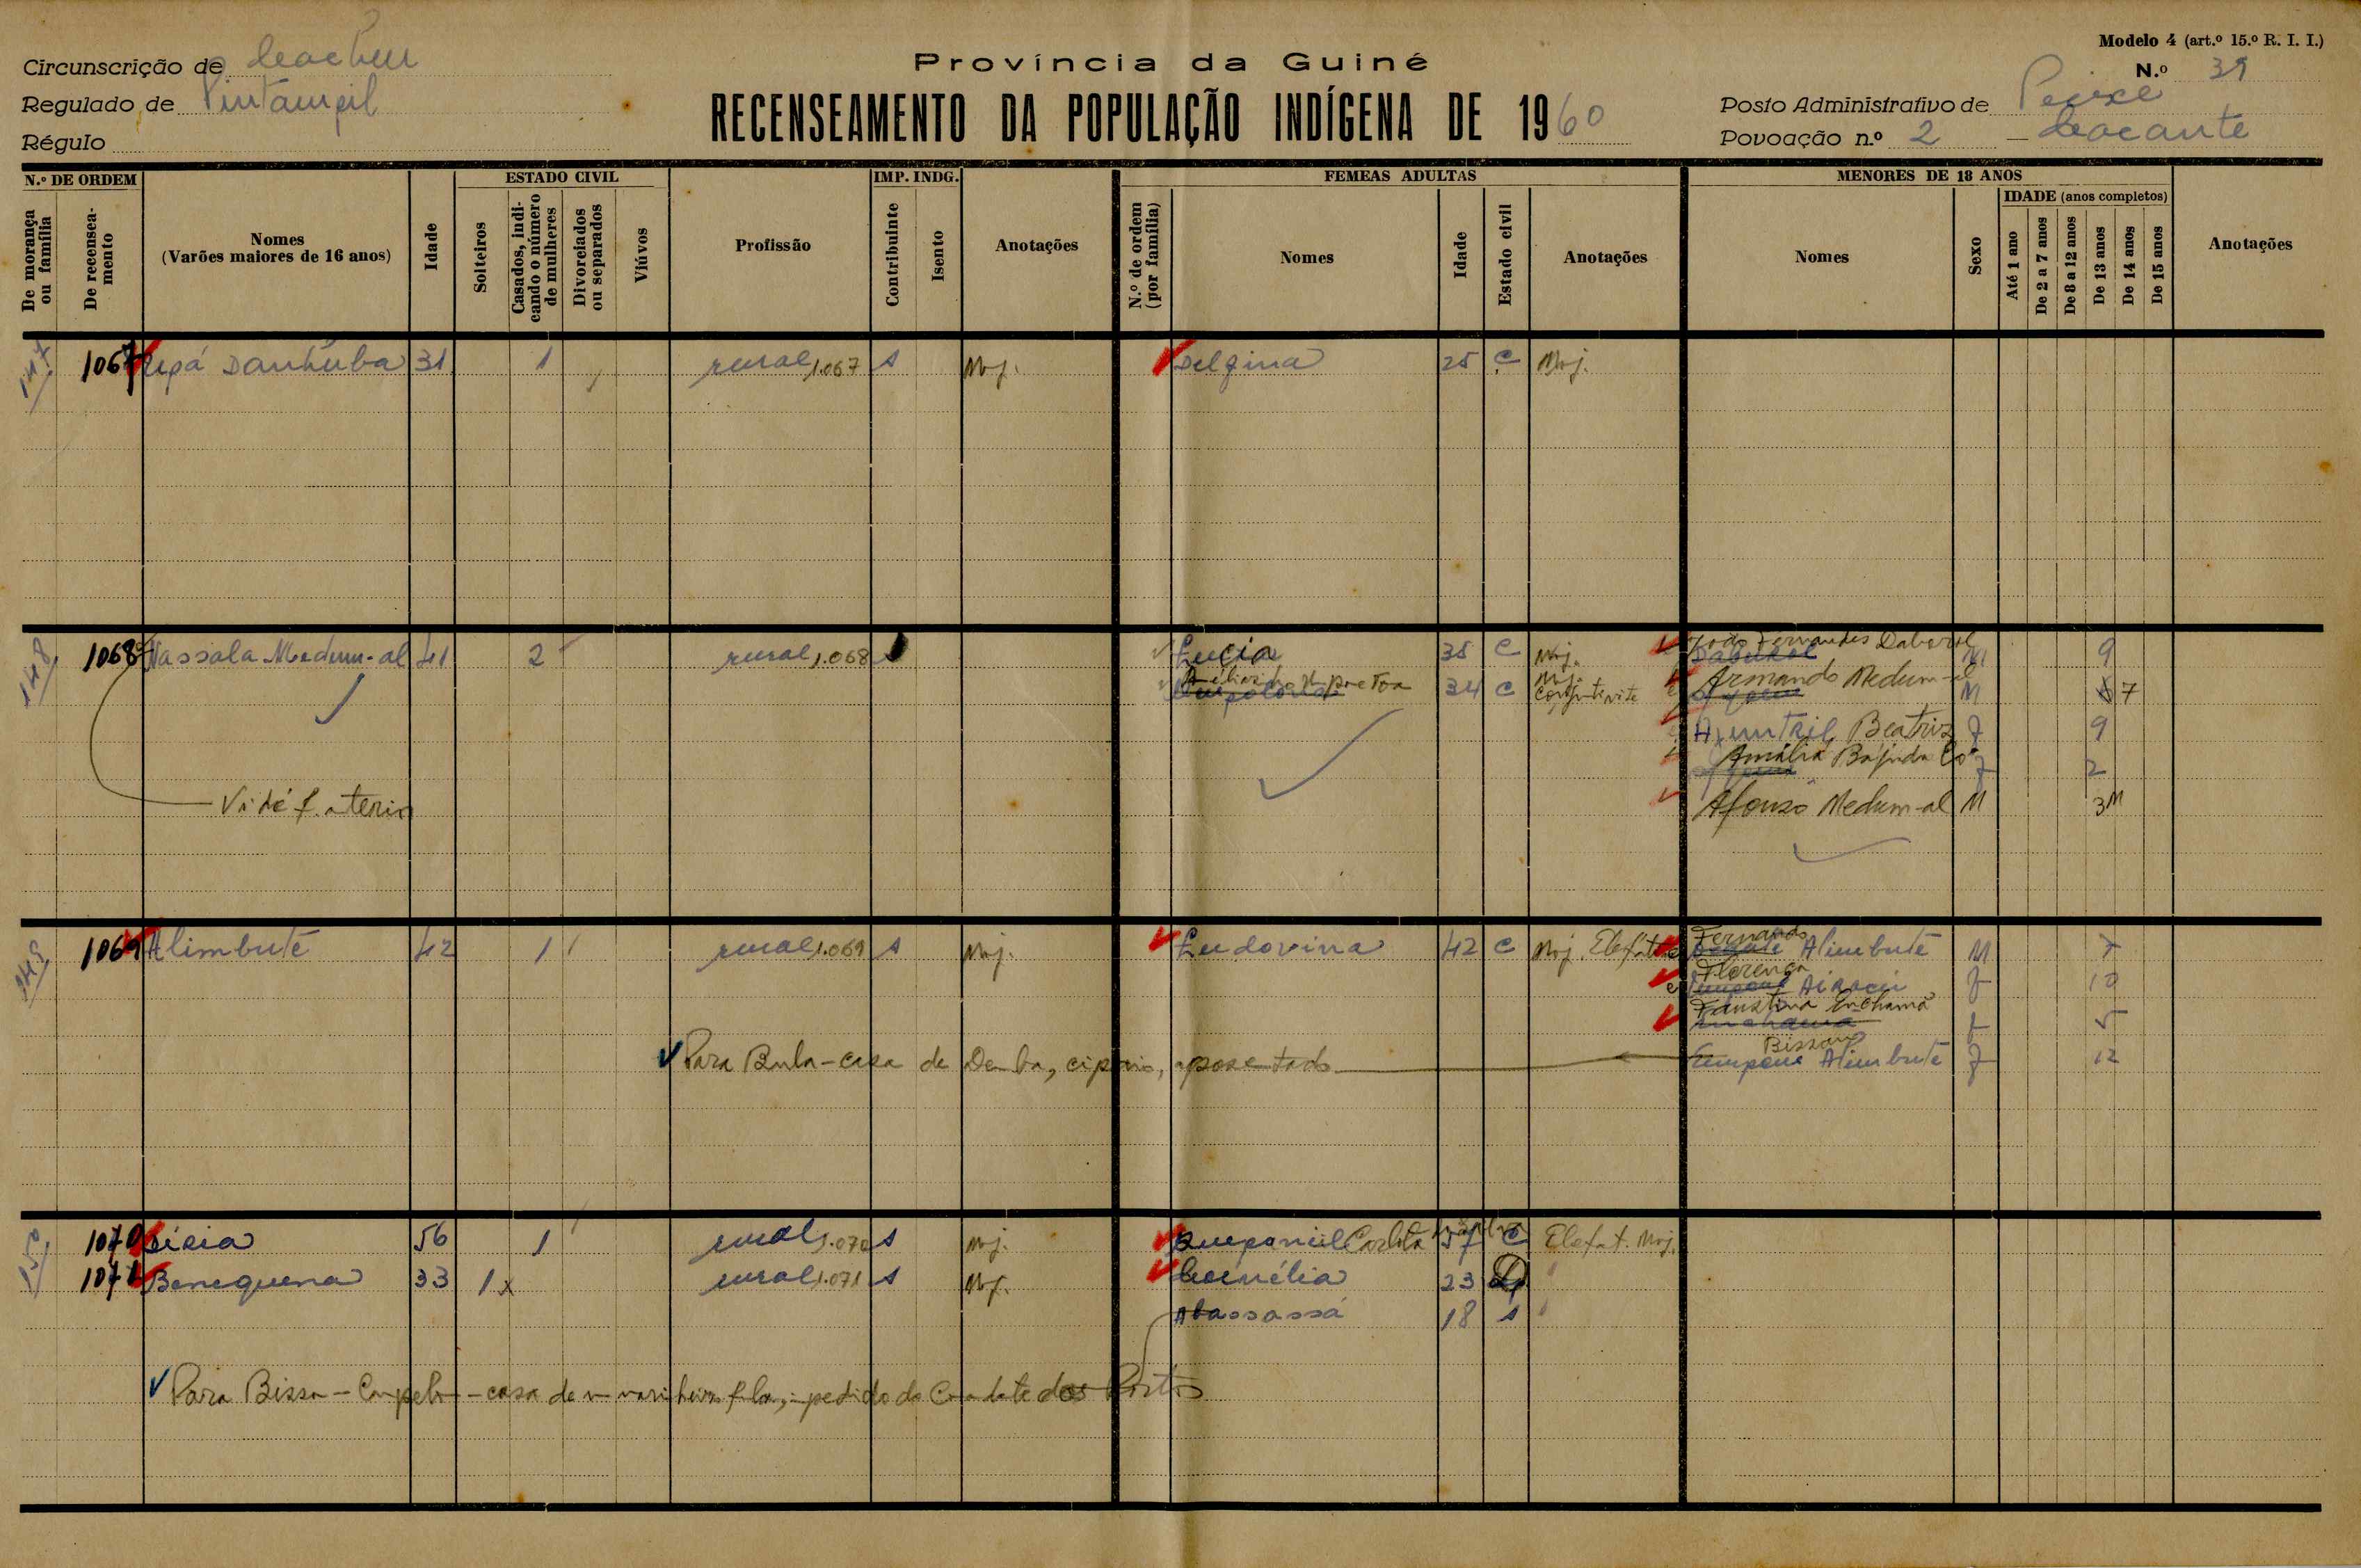 Modelo 4 (art.º 15.º R. I. I.)
Circunscrição de
Província da Guiné
N.º 39
Regulado de
RECENSEAMENTO DA POPULAÇÃO INDÍGENA DE 1960
Posto Administrativo de
Régulo
Povoação n.º 2 —
N.º DE ORDEM
De morança ou família
De recensea-mento
Nomes
(Varões maiores de 16 anos)
Idade
ESTADO CIVIL
Solteiros
Casados, indi-cando o número de mulheres
Divorciados ou separados
Viúvos
Profissão
IMP. INDG.
Contribuinte
Isento
Anotações
FEMEAS ADULTAS
N.º de ordem (por família)
Nomes
Idade
Estado civil
Anotações
MENORES DE 18 ANOS
Nomes
Sexo
IDADE (anos completos)
Até 1 ano
De 2 a 7 anos
De 8 a 12 anos
De 13 anos
De 14 anos
De 15 anos
Anotações
147 1067 Danhuba 31 1 rural 1.067 s Mnj. Delfina 25 C Mnj.
148 1068 Nassala Medum-al 41 2 rural 1.068 Lucia 35 C Mnj. João Fernandes Daborol M 9
34 C Mnj. Conjuntivite Armando Medum-al M 7
Beatriz F 9
Amália F 2
Afonso Medum-al M 3M
Vidé f. anterior
149 1069 Alimbuté 42 1 rural 1.069 s Mnj. Ludovina 42 C Mnj. Elefat. Fernando Alimbuté M 7
Florença F 10
Faustina Enchamá F 5
Bissau
Alimbuté F 12
Para Bula - casa de Demba, cipaio, aposentado
150 1070 56 1 rural 1.070 s Mnj. Carlota 57 C Elefat. Mnj.
1071 Benequena 33 1 x rural 1.071 s Mnj. Cornélia 23 D "
Abassassá 18 s "
Para Bissau - - casa de um marinheiro fula, a pedido do Comandante dos Portos